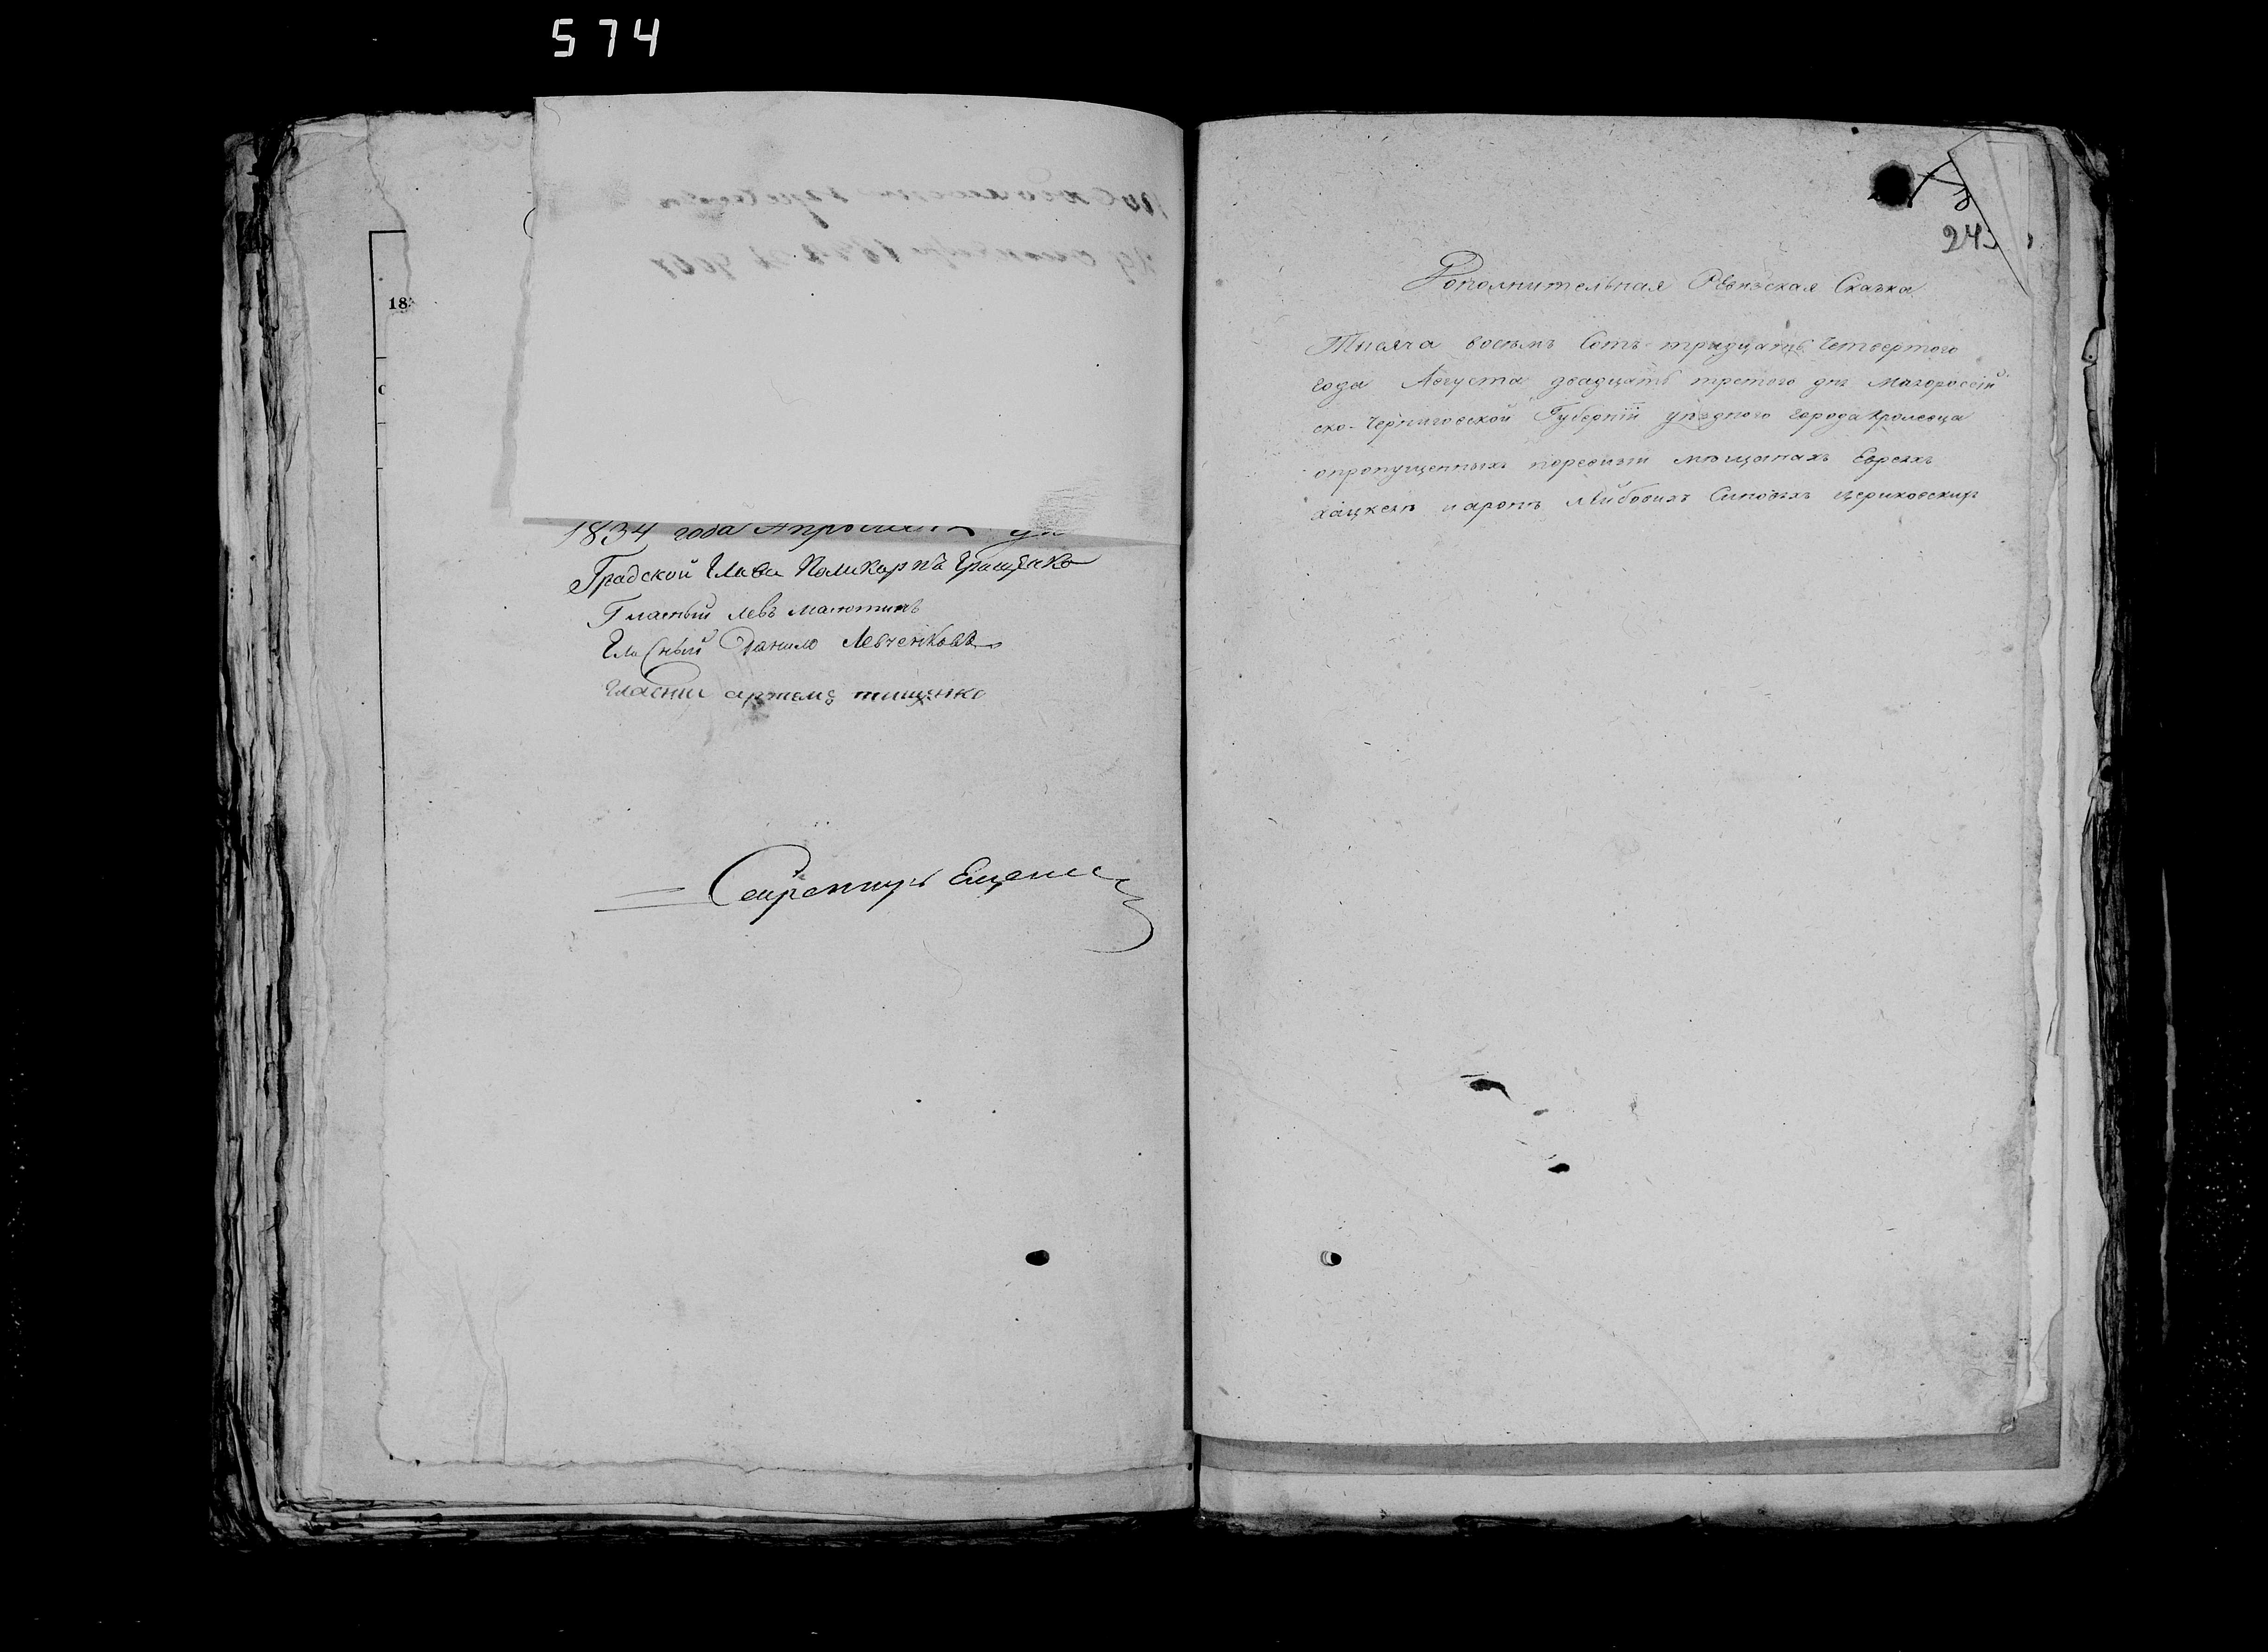 574
18
1834 года Апреля
Градской Глава Поликарпъ Грищенко
Гласный Левъ Малютинъ
Гласный Данило Левченковъ
гласни артемъ тищенко
Секретарь
243
Дополнительная Ревизская Сказка
Тысяча восемъ Сотъ тридцать Четвертого
года Августа двадцать третого дня Малоросcій
ско-Черниговской Губерніи уезднаго города Кролевца
опропущенныхъ поревизіи мещанахъ Евреяхъ
хацкелѣ и аронѣ Лейбовихъ Синовяхъ